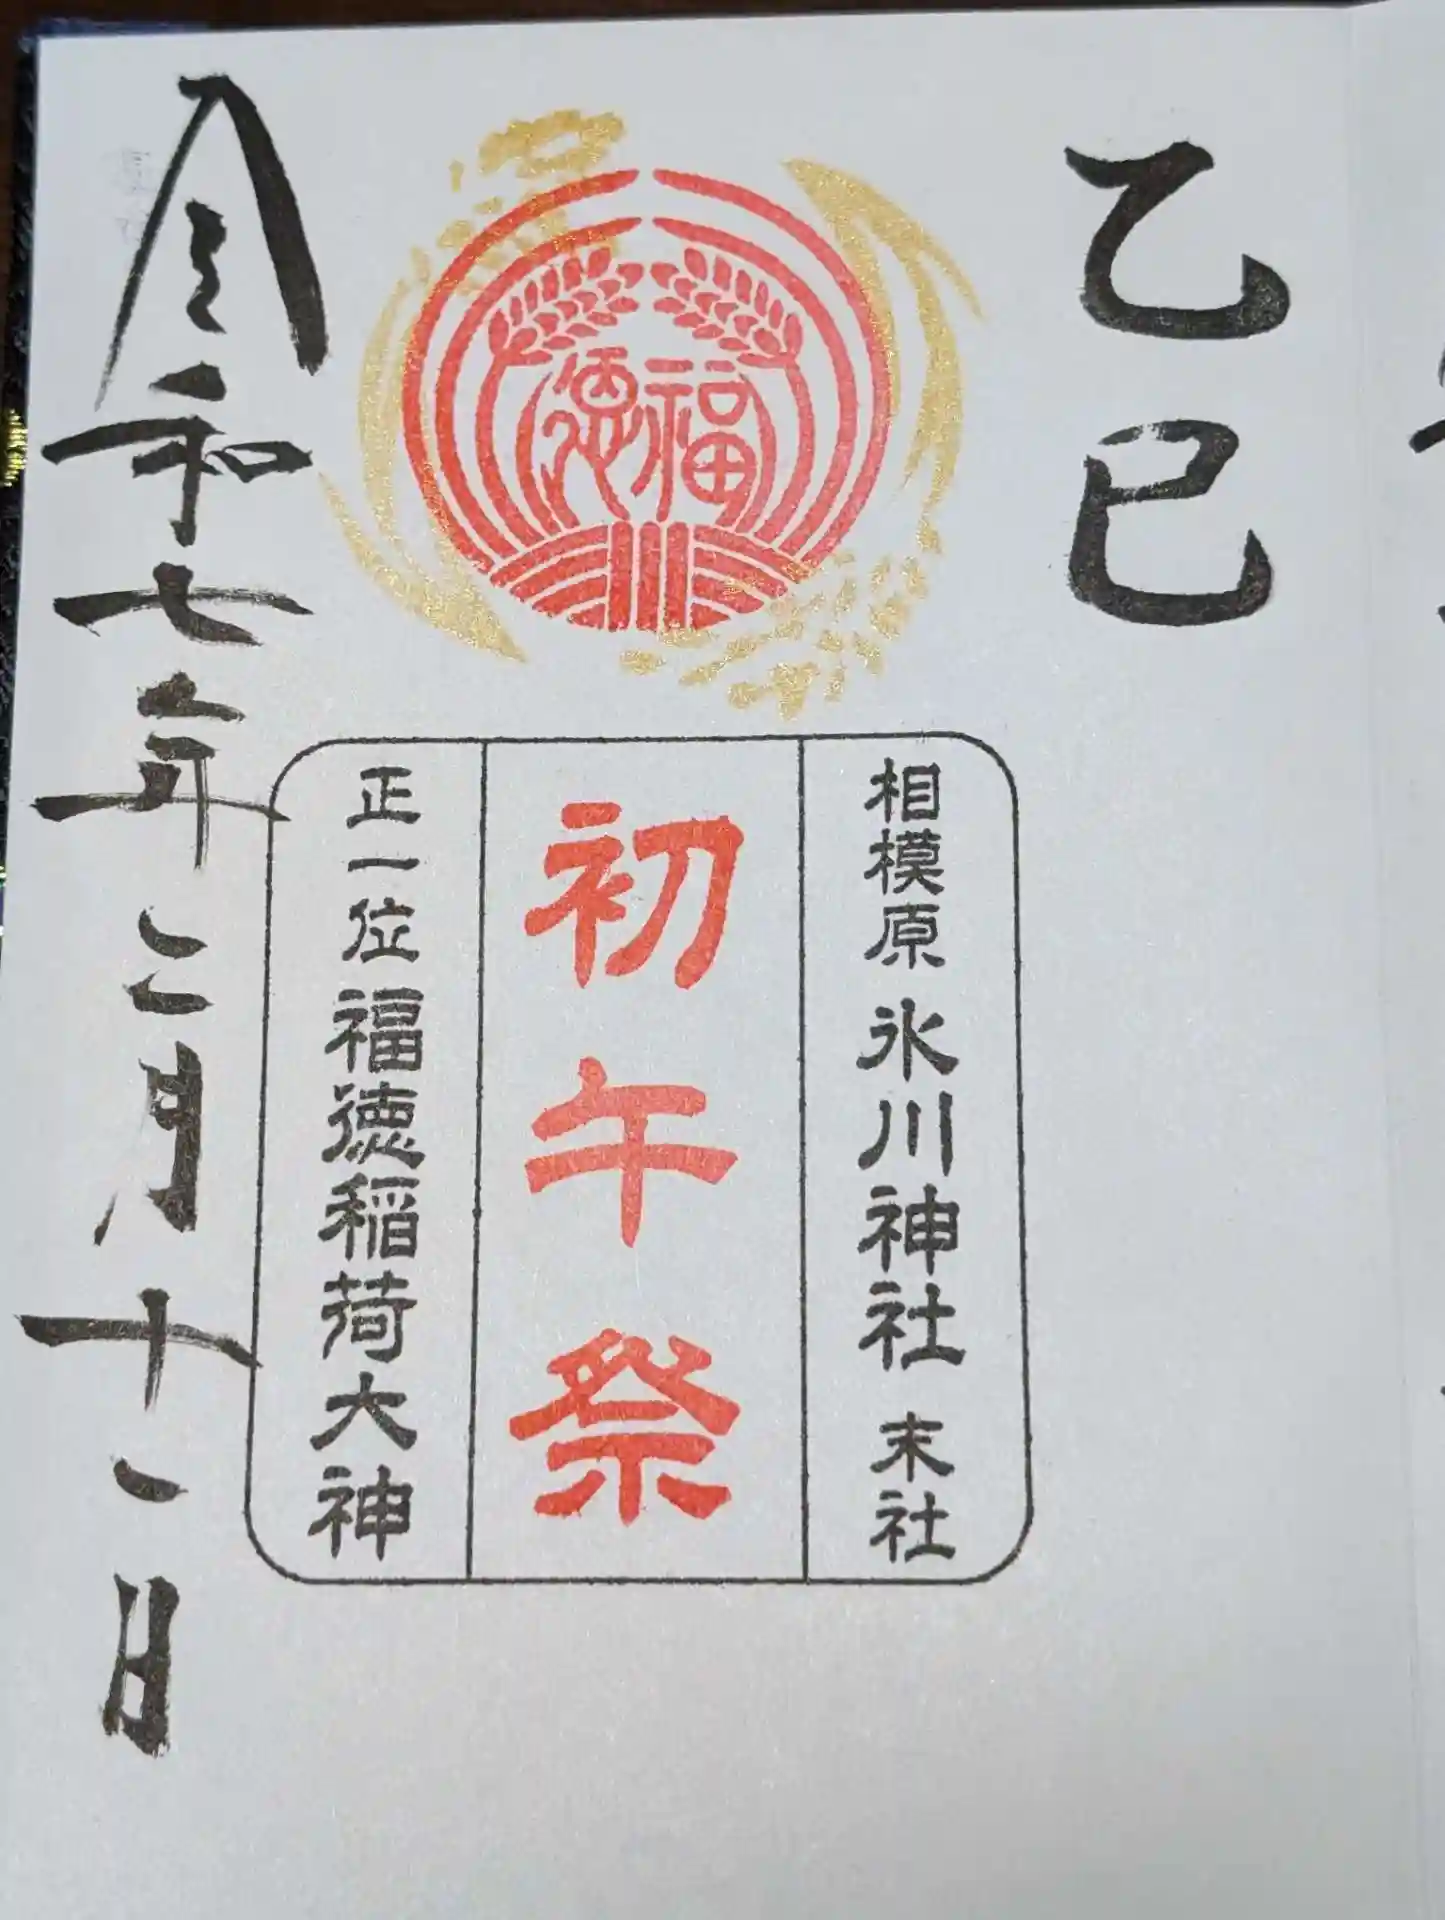 乙巳
福徳
相模原 氷川神社 末社
初午祭
正一位福徳稲荷大神
令和七年二月十一日